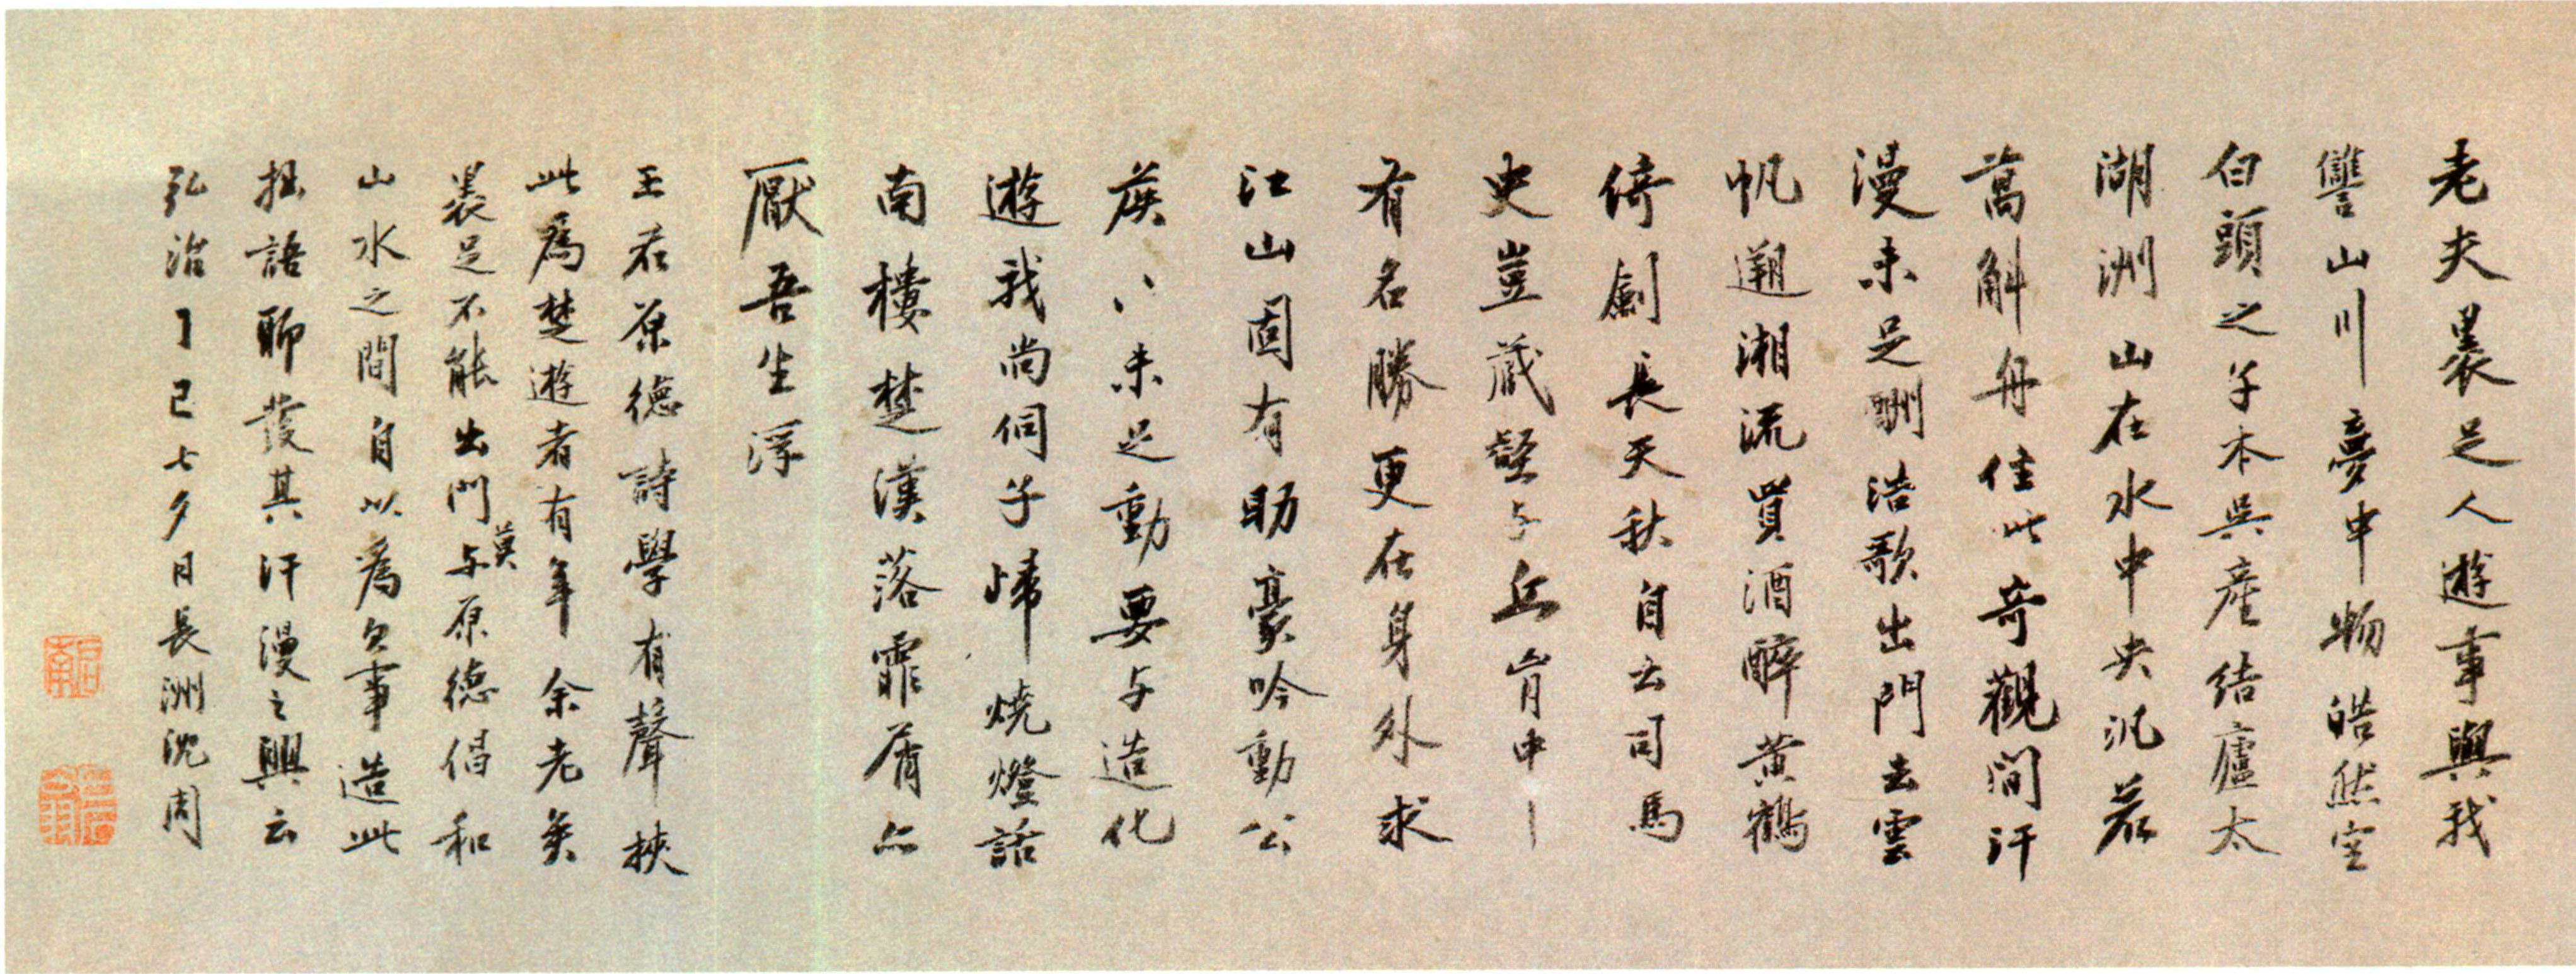 老夫裹足人遊事與我
讐山川夢中物皓然空
白頭之子本吳產結廬太
湖洲山在水中央汎若
萬斛舟住此奇觀間汗
漫未足酬浩歌出門去雲
帆遡湘流買酒醉黃鶴
倚劍長天秋自去司馬
史豈藏壑与丘胷中
有名勝更在身外求
江山固有助豪吟動公
侯〻未足動要与造化
遊我尚伺子歸燒燈話
南樓楚漢落霏屑亦
厭吾生浮
王君原德詩學有聲挾
此爲楚遊者有年余老矣
裹足不能出門莫与原德倡和
山水之間自以爲欠事造此
拙語聊發其汗漫之興云
弘治丁巳七夕日長洲沈周